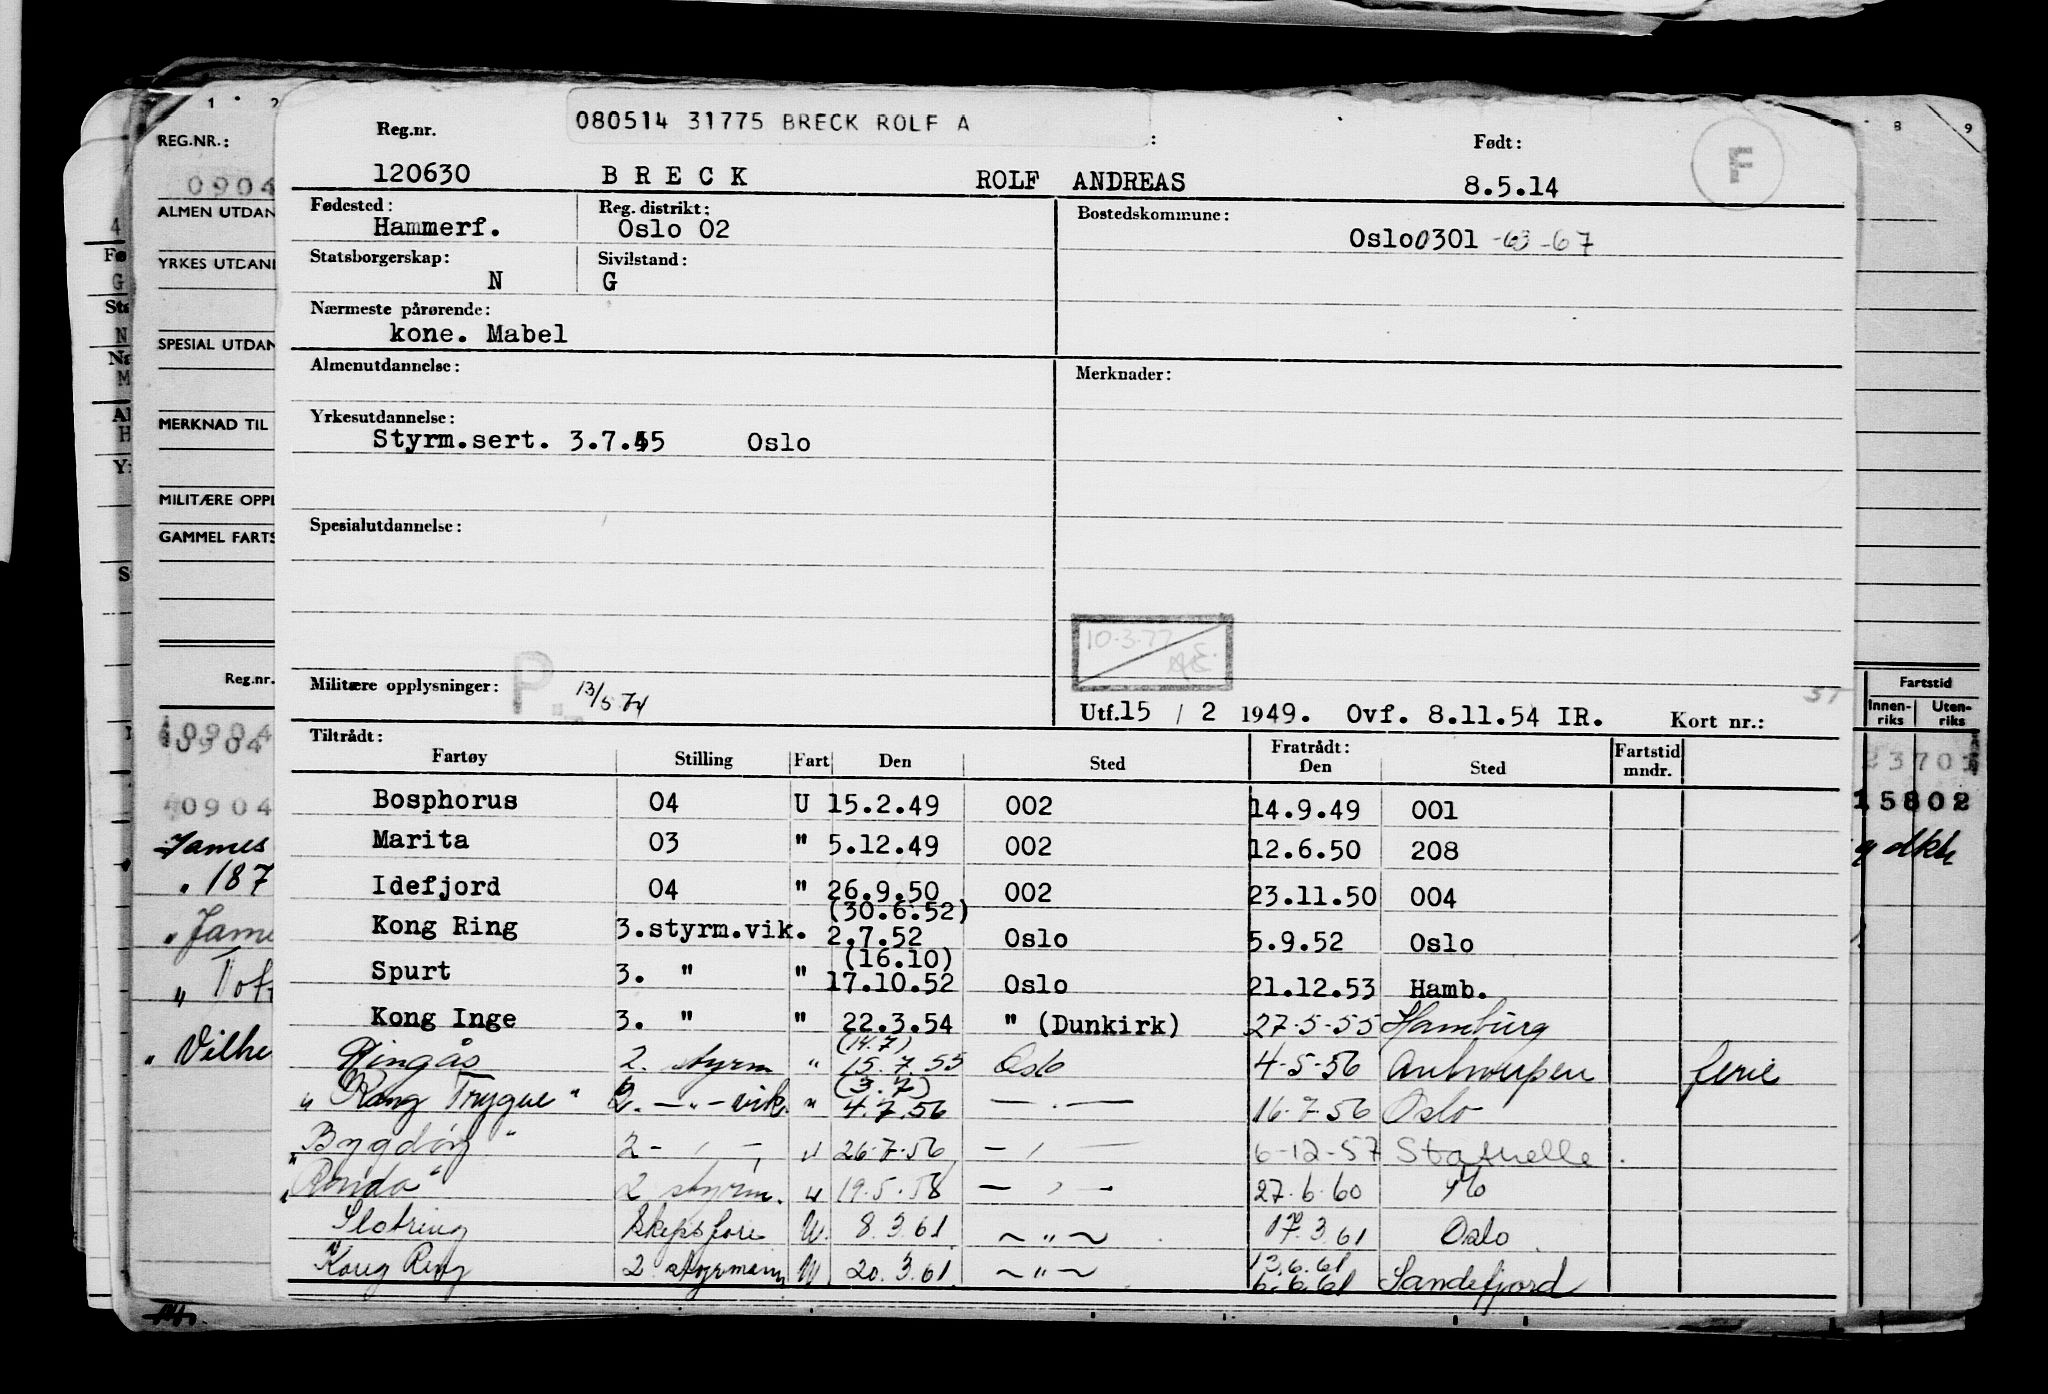 080514 31775 BRECK ROLF A
Reg.nr. Født:
120630 BRECK ROLF ANDREAS 8.5.14 F
Fødested: Reg. distrikt: Bostedskommune:
Hammerf. Oslo 02 Oslo 0301 -63-67
Statsborgerskap: Sivilstand:
N G
Nærmeste pårørende:
kone. Mabel
Almenutdannelse: Merknader:
Yrkesutdannelse:
Styrm.sert. 3.7.45 Oslo
Spesialutdannelse:
10.3.77
Militære opplysninger: P. 13/5 74
Utf.15 / 2 1949. Ovf. 8.11.54 IR. Kort nr.:
Tiltrådt: Fratrådt:
Fartøy Stilling Fart Den Sted Den Sted Fartstid mndr.
Bosphorus 04 U 15.2.49 002 14.9.49 001
Marita 03 " 5.12.49 002 12.6.50 208
Idefjord 04 " 26.9.50 002 23.11.50 004
(30.6.52)
Kong Ring 3.styrm.vik. 2.7.52 Oslo 5.9.52 Oslo
(16.10)
Spurt 3. " " 17.10.52 Oslo 21.12.53 Hamb.
Kong Inge 3. " " 22.3.54 " (Dunkirk) 27-5-55 Hamburg
(14.7)
Ringås 2. styrm " 15.7.55 Oslo 4-5-56 Antwerpen ferie
(3.7)
"Kong Trygve" 2. — " — vik. " 4.7.56 — . — 16-7-56 Oslo
"Bygdøy" 2 - , - " 26-7-56 — , — 6-12-57
"Ronda" 2 styrm. " 19.5.58 — , — 27.6.60
Slotring U. 8.3.61 ~ " ~ 17.3.61 Oslo
13.6.61
Kong Ring 2 styrmann U 20.3.61 ~ " ~ 6.6.61 Sandefjord
1 2
REG.NR.:
0904
ALMEN UTDAN
YRKES UTDAN
SPESIAL UTDAN
MERKNAD TIL
MILITÆRE OPPL
GAMMEL FARTS
Reg.nr.
40904
40904
James
" 187
" Jame
" Vilhe
8 9
Fartstid
Innen-riks Uten-riks
2370
15802